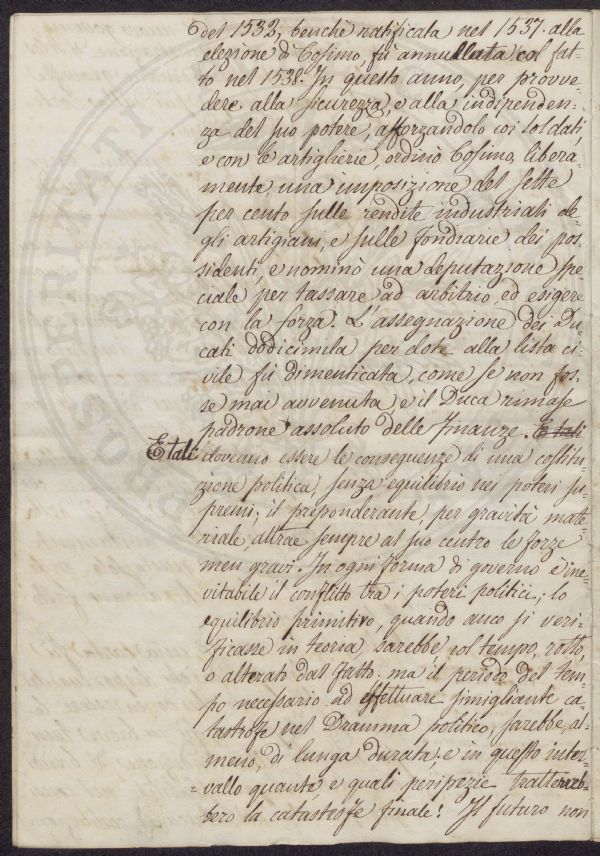 del 1532, benchè ratificata nel 1537. alla
elezione di Cosimo, fù annullata col fat-
to nel 1538. In questo anno, per provve-
dere alla sicurezza, e alla indipenden-
za del suo potere, afforzandolo coi soldati,
e con le artiglierie, ordinò Cosimo, libera-
mente, una imposizione del sette
per cento sulle rendite industriali de-
gli artigiani, e sulle fondiarie dei pos-
sidenti, e nominò una deputazione spe-
ciale per tassare ad arbitrio, ed esigere
con la forza. L'assegnazione dei Du-
cati dodicimila per dote alla lista ci-
vile fù dimenticata, come se non fos-
se mai avvenuta, e il Duca rimase
padrone assoluto delle finanze. E tali
E tali doveano essere le conseguenze di una costitu-
zione politica, senza equilibrio nei poteri su-
premi; il preponderante, per gravità mate-
riale, attrae sempre al suo centro le forze
men gravi. In ogni forma di governo è ine-
vitabile il conflitto tra i poteri politici; lo
equilibrio primitivo, quando anco si veri-
ficasse in teoria, sarebbe, col tempo, rotto,
o alterato dal fatto. ma il periodo del tem-
po necessario ad effettuare simigliante ca-
tastrofe nel Dramma politico, sarebbe, al-
meno, di lunga durata, e in questo inter-
vallo quante, e quali peripezie tratterreb-
bero la catastrofe finale! Il futuro non